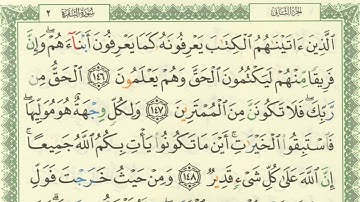 الجزء الثاني ٢ سورة البقرة
الَّذِينَ ءَاتَيْنَٰهُمُ الْكِتَٰبَ يَعْرِفُونَهُۥ كَمَا يَعْرِفُونَ أَبْنَآءَهُمْ ۖ وَإِنَّ
فَرِيقًا مِّنْهُمْ لَيَكْتُمُونَ الْحَقَّ وَهُمْ يَعْلَمُونَ ١٤٦ الْحَقُّ مِن
رَّبِّكَ ۖ فَلَا تَكُونَنَّ مِنَ الْمُمْتَرِينَ ١٤٧ وَلِكُلٍّ وِجْهَةٌ هُوَ مُوَلِّيهَا ۖ
فَاسْتَبِقُوا الْخَيْرَٰتِ ۚ أَيْنَ مَا تَكُونُوا يَأْتِ بِكُمُ اللَّهُ جَمِيعًا ۚ
إِنَّ اللَّهَ عَلَىٰ كُلِّ شَىْءٍ قَدِيرٌ ١٤٨ وَمِنْ حَيْثُ خَرَجْتَ فَوَلِّ